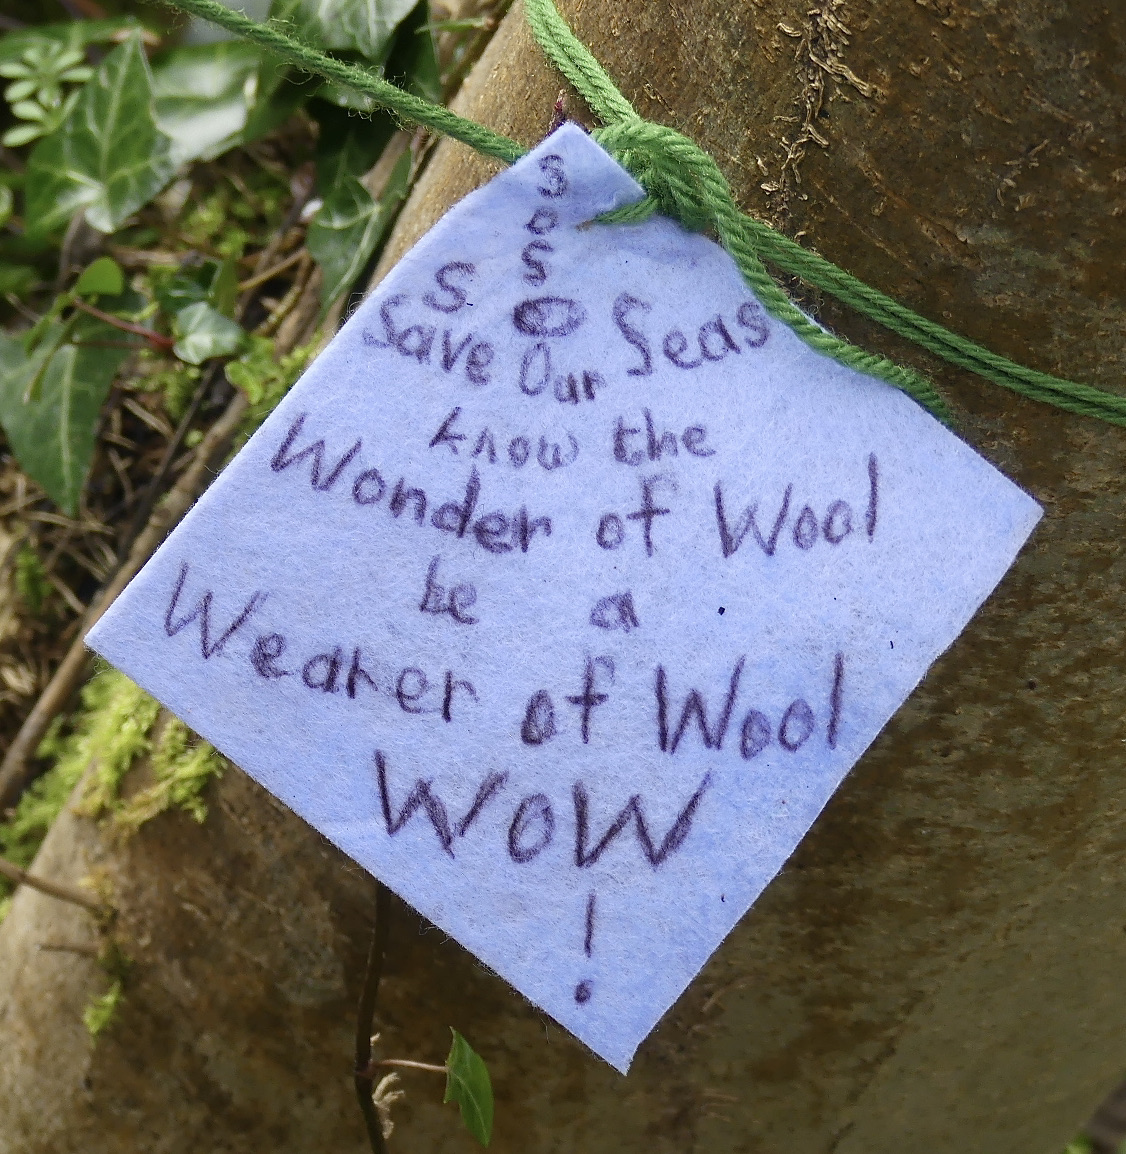 S
O
S
S O
Save Our Seas
know the
Wonder of Wool
be a
Wearer of Wool
WOW
!